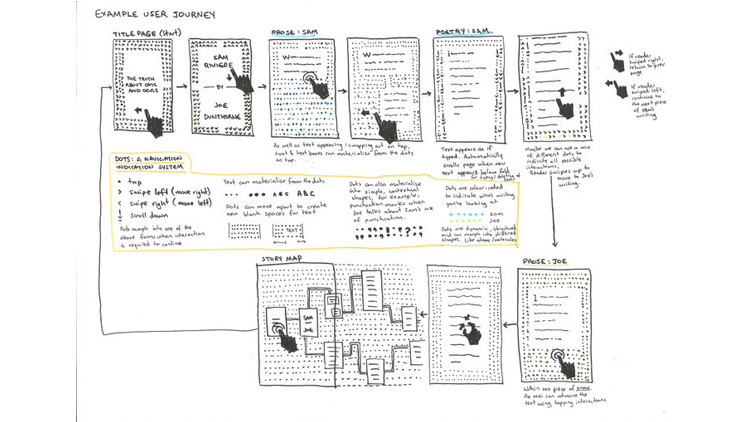 EXAMPLE USER JOURNEY
TITLE PAGE (Start)
THE TRUTH
ABOUT CATS
AND DOGS
SAM
RIVIERE
BY
JOE
DUNTHORNE
PROSE: SAM
As well as text appearing / swapping out on tap,
text & text boxes can materialise from the dots
on tap.
POETRY: SAM
Text appears as if
typed. Automatically
scrolls page when new
text appears below fold
Maybe we can use a mix
of different dots to
indicate all possible
interactions.
Reader swipes up
to move to Joe's
writing.
If reader
swiped right,
return to prev
page
If reader
swiped left,
continue to
the next piece
of Sam's
writing
DOTS: A NAVIGATION
INDICATION SYSTEM
• tap
> swipe left (move right)
< swipe right (move left)
scroll down
Dots morph into one of the
above forms when interaction
is required to continue
Text can materialise from the dots
ABC ABC
Dots can move apart to create
new blank spaces for text
TEXT
Dots can also materialise
into simple, contextual
shapes, for example,
punctuation marks when
Joe talks about Sam's use
of punctuation.
Dots are colour-coded
to indicate who's writing
you're looking at
Sam
Joe
Dots are dynamic, structured
and can morph into different
shapes. Like atoms/molecules
STORY MAP
SAM
JOE
PROSE: JOE
Within one piece of prose
the user can advance the
text using tapping interactions